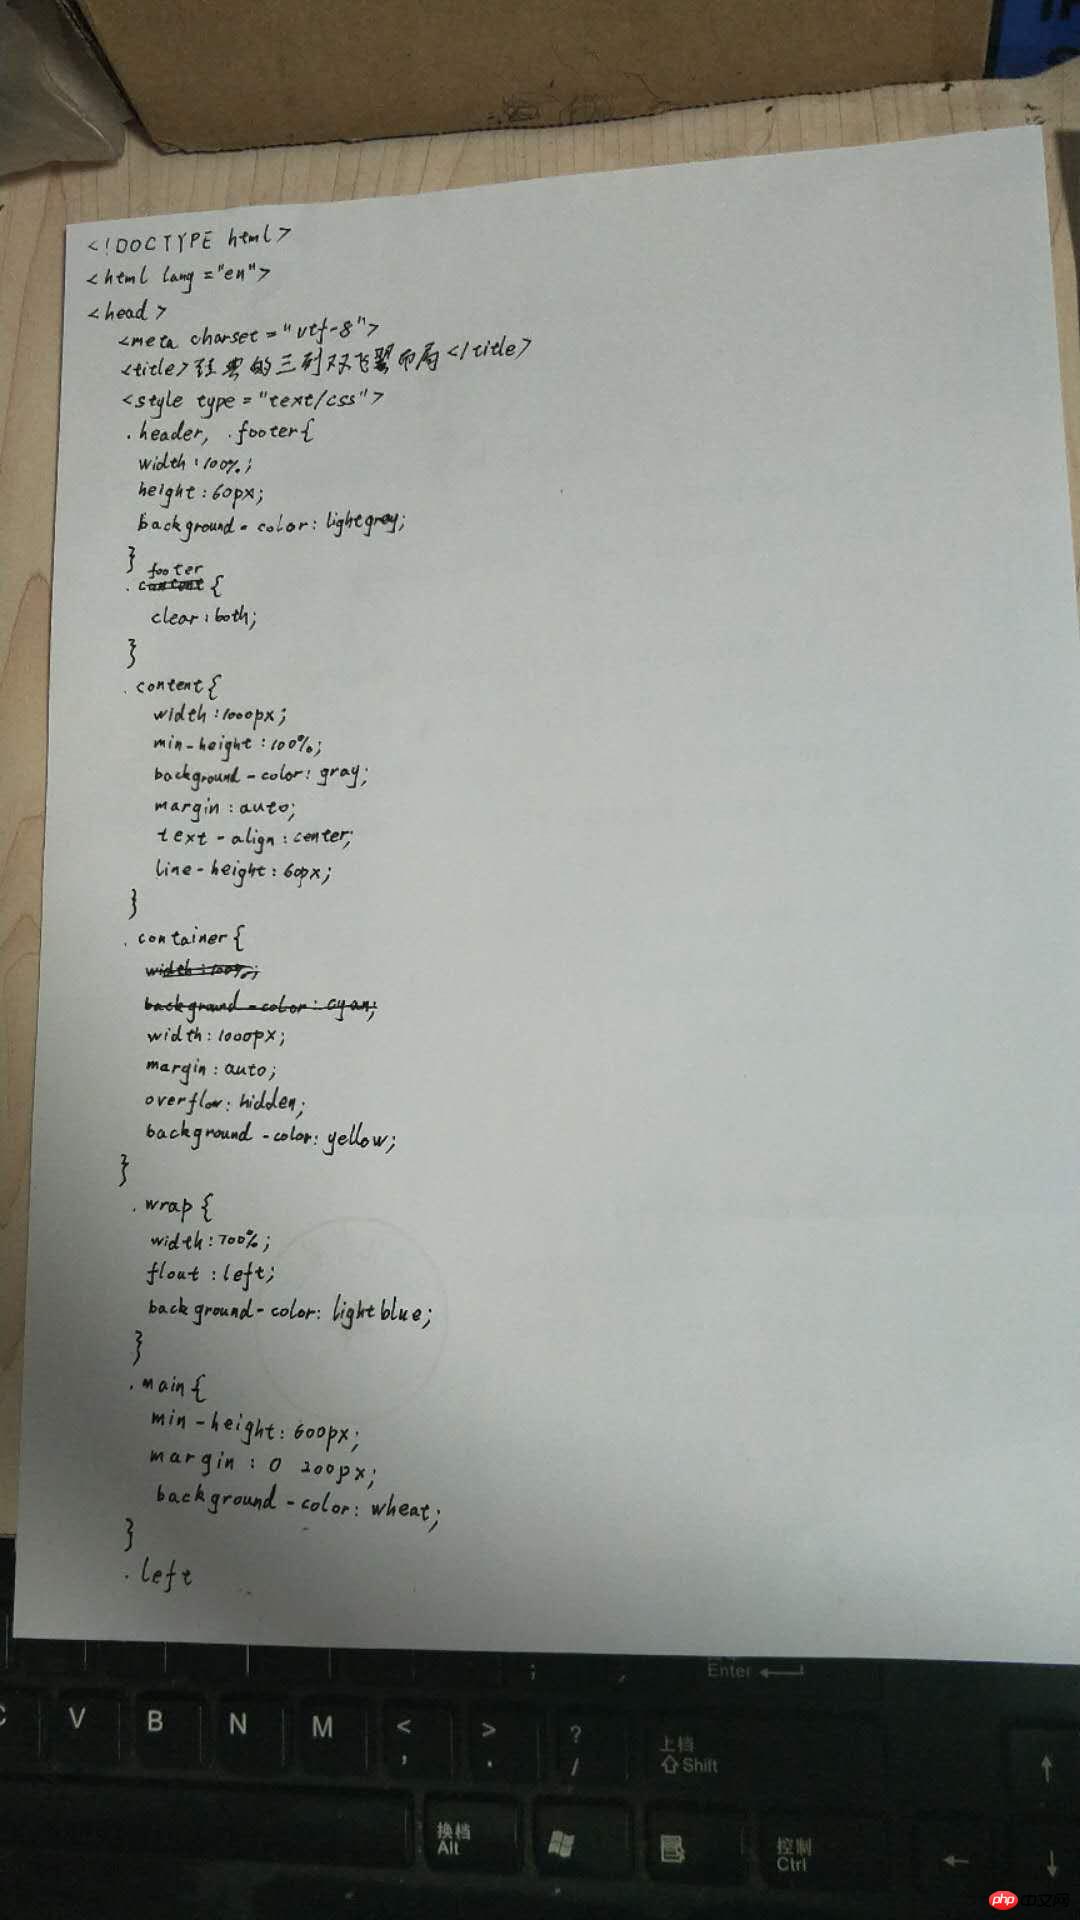 <!DOCTYPE html>
<html lang="en">
<head>
<meta charset="utf-8">
<title>经典的三列双飞翼布局</title>
<style type="text/css">
.header, .footer{
width:100%;
height:60px;
background-color:lightgray;
}
.footer{
clear:both;
}
.content{
width:1000px;
min-height:100%;
background-color:gray;
margin:auto;
text-align:center;
line-height:60px;
}
.container{
width:100%;
background-color:cyan;
width:1000px;
margin:auto;
overflow:hidden;
background-color:yellow;
}
.wrap{
width:100%;
float:left;
background-color:lightblue;
}
.main{
min-height:600px;
margin:0 200px;
background-color:wheat;
}
.left
Enter
C V B N M < , > . ? / 上档 Shift
换档 Alt 控制 Ctrl
php中文网